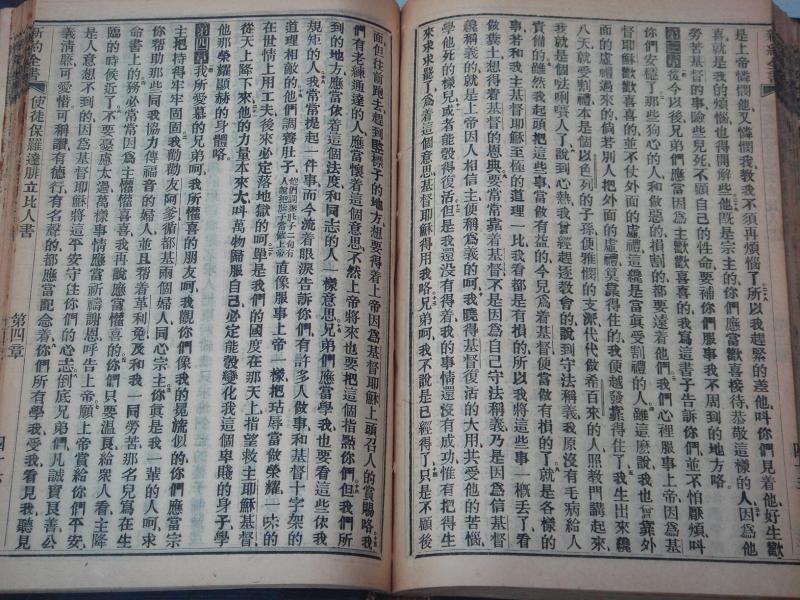 是上帝憐憫他又憐憫我教我不須再煩惱了所以我趕緊的差他叫你們見着他好生歡
喜就是我的煩惱也得開解些他既是宗主的你們應當歡喜接待恭敬這樣的人因為他
勞苦基督的事險些兒死不顧自己的性命要補你們服事我不周到的地方咯
第三章 從今以後兄弟們應當因為主歡歡喜喜的我寫這書子告訴你們並不怕厭煩叫
你們安穩了那些狗心的人和做惡的損割的都要遠着他們我們心裡服事上帝因為基
督耶穌歡歡喜喜的並不仗外面的虛禮這纔是當真受割禮的人雖這麽說我也曾靠外
的虛禮過來的倘若別人把外面的虛禮靠得住的我便越發靠得住了我生出來纔
八天就受割禮本是個以色列的子孫便雅憫的支派代代做希百來的人照教門講起來
我就是個人了說到心熱我曾經趕逐教會的說到守法稱義我原沒有毛病給人
責備的雖然我起頭把這些事當做有益的今兒為着基督便當做有損的了就是各樣的
事若和我主基督耶穌至極的道理一比我看都是有損的所以我將這些事一概丟了看
做糞土想得着基督的恩典要常常靠着基督不是因為自己守法稱義乃是因為信基督
纔稱義的就是上帝因人相信主便稱為義的呵我曉得基督復活的大用共受他的苦惱
學他死的樣兒或者能彀得復活但是我還沒有得着我的事情還沒有成功惟有把得生
來求求罷了為着這個意思基督耶穌得用我咯兄弟呵我不說是已經得了只是不顧後
面但往前跑去趕到標子的地方想要得着上帝因為基督耶穌上頭召人的賞賜咯我
們有老練通達的人應當懷着這個意思不然上帝將來也要把這個指點你們但我們所
到的地方應當依着這個法度和同志的人一樣意思兄弟們應當學我也要看這些依我
規矩的人我常常提起一件事而今流着眼淚告訴你們有許多人做事和基督十字架的
道理相敵的他們調養肚子直像服事上帝一樣把玷辱當做榮耀一味的
在世情上用工夫後來必定落地獄的呵單是我們的國度在那天上指望救主耶穌基督
從天上降下來他的力量本來大叫萬物歸服自己必定能彀變化我這個卑賤的身子學
他那榮耀顯赫的身體咯
第四章 我所愛慕的兄弟呵我所懽喜的朋友呵我觀你們像我的冕旒似的你們應當宗
主把持得牢牢固固我勸勸友阿爹循都基兩個婦人同心宗主你真是我一輩的人呵求
你幫助那些同我協力傳福音的婦人並且幫着革利免及和我一同勞苦那名兒寫在生
命書上的務必常常因為主懽懽喜喜我再說應當懽喜的你們只要溫良給衆人看主降
臨的時候近了不要憂慮太過萬樣事情應當祈禱謝恩呼告上帝願上帝賞給你們平安
是人意想不到的因為基督耶穌將這平安守住你們的心志到底兄弟們凡誠實良善公
義清廉可愛惜可稱讚有德行有名聲的都應當記念着你們所有學我受我看見我聽見
新約全書 使徒保羅達腓立比人書 第四章